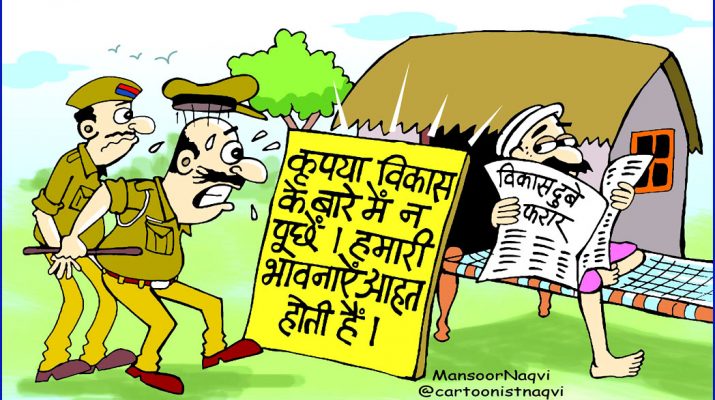 कृपया विकास
के बारे में न
पूछें । हमारी
भावनाएँ आहत
होती हैं ।
विकास दुबे
फरार
MansoorNaqvi
@cartoonistnaqvi